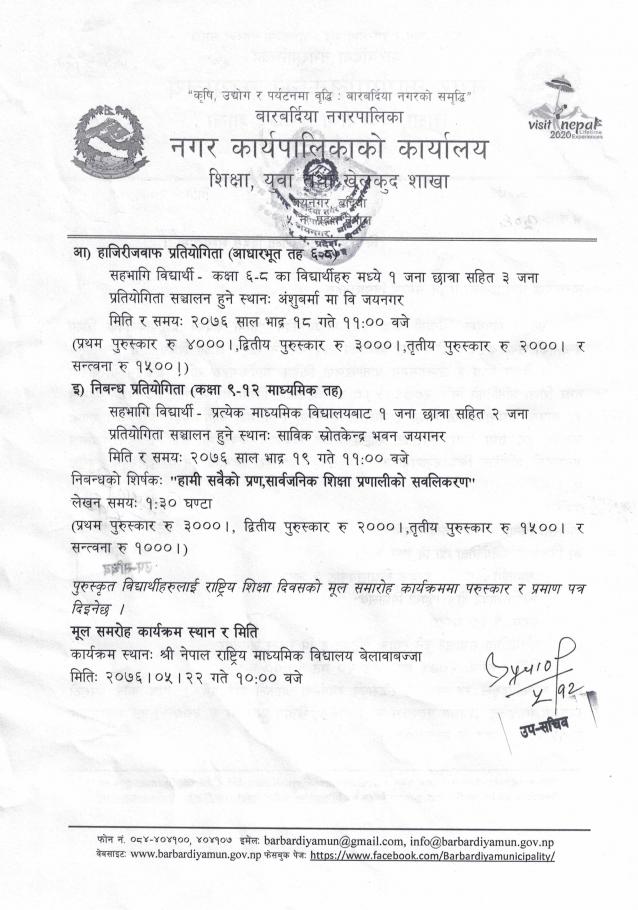 "कृषि, उद्योग र पर्यटनमा वृद्धि : बारबर्दिया नगरको समृद्धि"
बारबर्दिया नगरपालिका
नगर कार्यपालिकाको कार्यालय
शिक्षा, युवा तथा खेलकुद शाखा
जयनगर, बर्दिया
visit nepal
2020 Lifetime Experiences
आ) हाजिरीजवाफ प्रतियोगिता (आधारभूत तह ६-८)
सहभागि विद्यार्थी - कक्षा ६-८ का विद्यार्थीहरु मध्ये १ जना छात्रा सहित ३ जना
प्रतियोगिता सञ्चालन हुने स्थानः अंशुबर्मा मा वि जयनगर
मिति र समयः २०७६ साल भाद्र १८ गते ११:०० वजे
(प्रथम पुरुस्कार रु ४०००।,द्वितीय पुरुस्कार रु ३०००।,तृतीय पुरुस्कार रु २०००। र
सन्त्वना रु १५००।)
इ) निबन्ध प्रतियोगिता (कक्षा ९-१२ माध्यमिक तह)
सहभागि विद्यार्थी - प्रत्येक माध्यमिक विद्यालयबाट १ जना छात्रा सहित २ जना
प्रतियोगिता सञ्चालन हुने स्थानः साविक स्रोतकेन्द्र भवन जयगनर
मिति र समयः २०७६ साल भाद्र १९ गते ११:०० वजे
निबन्धको शिर्षकः "हामी सवैको प्रण,सार्वजनिक शिक्षा प्रणालीको सवलिकरण"
लेखन समयः १:३० घण्टा
(प्रथम पुरुस्कार रु ३०००।, द्वितीय पुरुस्कार रु २०००।,तृतीय पुरुस्कार रु १५००। र
सन्त्वना रु १०००।)
पुरुस्कृत विद्यार्थीहरुलाई राष्ट्रिय शिक्षा दिवसको मूल समारोह कार्यक्रममा परुस्कार र प्रमाण पत्र
दिइनेछ ।
मूल समरोह कार्यक्रम स्थान र मिति
कार्यक्रम स्थानः श्री नेपाल राष्ट्रिय माध्यमिक विद्यालय बेलावावज्जा
मितिः २०७६।०५।२२ गते १०:०० वजे
उप-सचिव
फोन नं. ०८४-४०४१००, ४०४१०७ इमेलः barbardiyamun@gmail.com, info@barbardiyamun.gov.np
वेबसाइटः www.barbardiyamun.gov.np फेसबुक पेजः https://www.facebook.com/Barbardiyamunicipality/